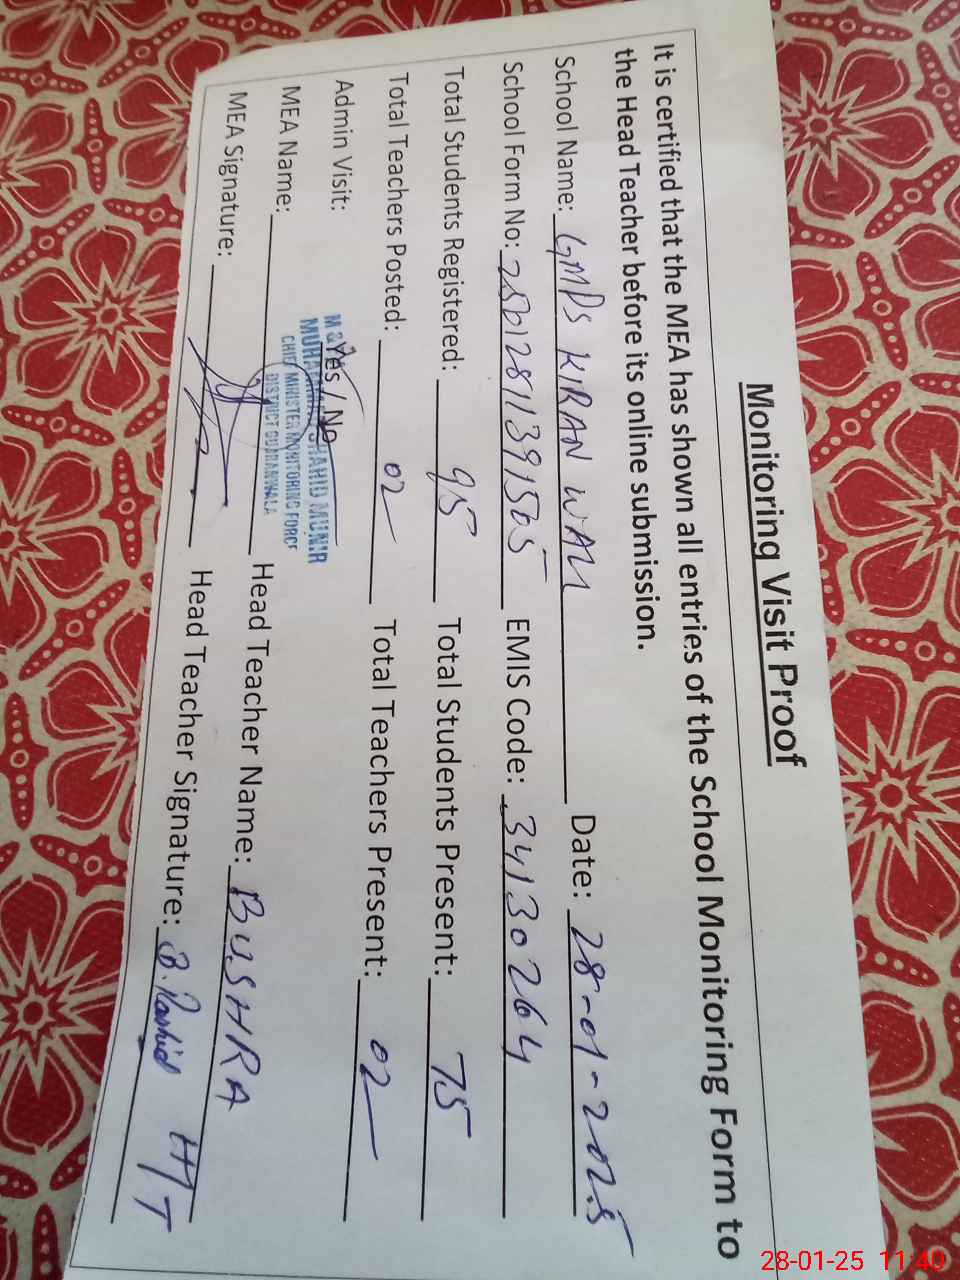 Monitoring Visit Proof
It is certified that the MEA has shown all entries of the School Monitoring Form to
the Head Teacher before its online submission.
School Name: GMPS KIRAN WALI Date: 28-01-2025
School Form No: EMIS Code: 34130264
Total Students Registered: 95 Total Students Present: 75
Total Teachers Posted: 02 Total Teachers Present: 02
Admin Visit: Yes / No
MUHAMMAD SHAHID MUNIR
CHIEF MINISTER MONITORING FORCE
DISTRICT GUJRANWALA
MEA Name: Head Teacher Name: BUSHRA
MEA Signature: Head Teacher Signature: B. Rashid HT
28-01-25 11:40